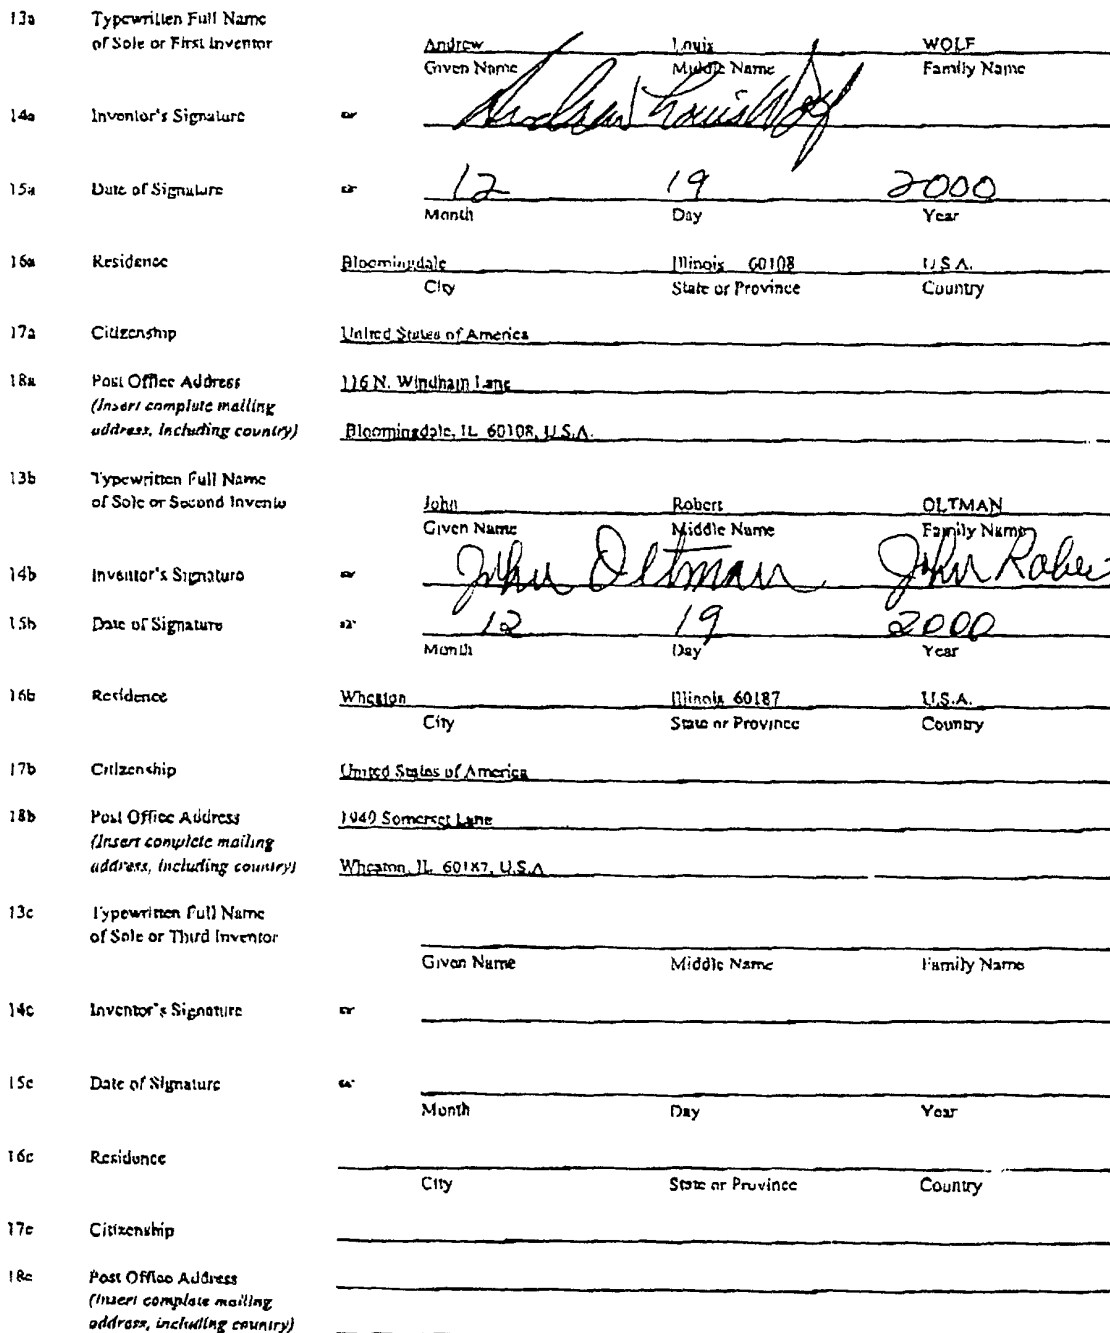 13a Typewritten Full Name
of Sole or First Inventor Andrew Louis WOLF
Given Name Middle Name Family Name
14a Inventor's Signature Andrew Louis Wolf
15a Date of Signature 12 19 2000
Month Day Year
16a Residence Bloomingdale Illinois 60108 U.S.A.
City State or Province Country
17a Citizenship United States of America
18a Post Office Address 116 N. Windham Lane
(Insert complete mailing
address, including country) Bloomingdale, IL 60108, U.S.A.
13b Typewritten Full Name
of Sole or Second Invento John Robert OLTMAN
Given Name Middle Name Family Name
14b Inventor's Signature John Oltman John Rober
15b Date of Signature 12 19 2000
Month Day Year
16b Residence Wheaton Illinois 60187 U.S.A.
City State or Province Country
17b Citizenship United States of America
18b Post Office Address 1940 Somerset Lane
(Insert complete mailing
address, including country) Wheaton, IL 60187, U.S.A
13c Typewritten Full Name
of Sole or Third Inventor
Given Name Middle Name Family Name
14c Inventor's Signature
15c Date of Signature
Month Day Year
16c Residence
City State or Province Country
17c Citizenship
18c Post Office Address
(Insert complete mailing
address, including country)